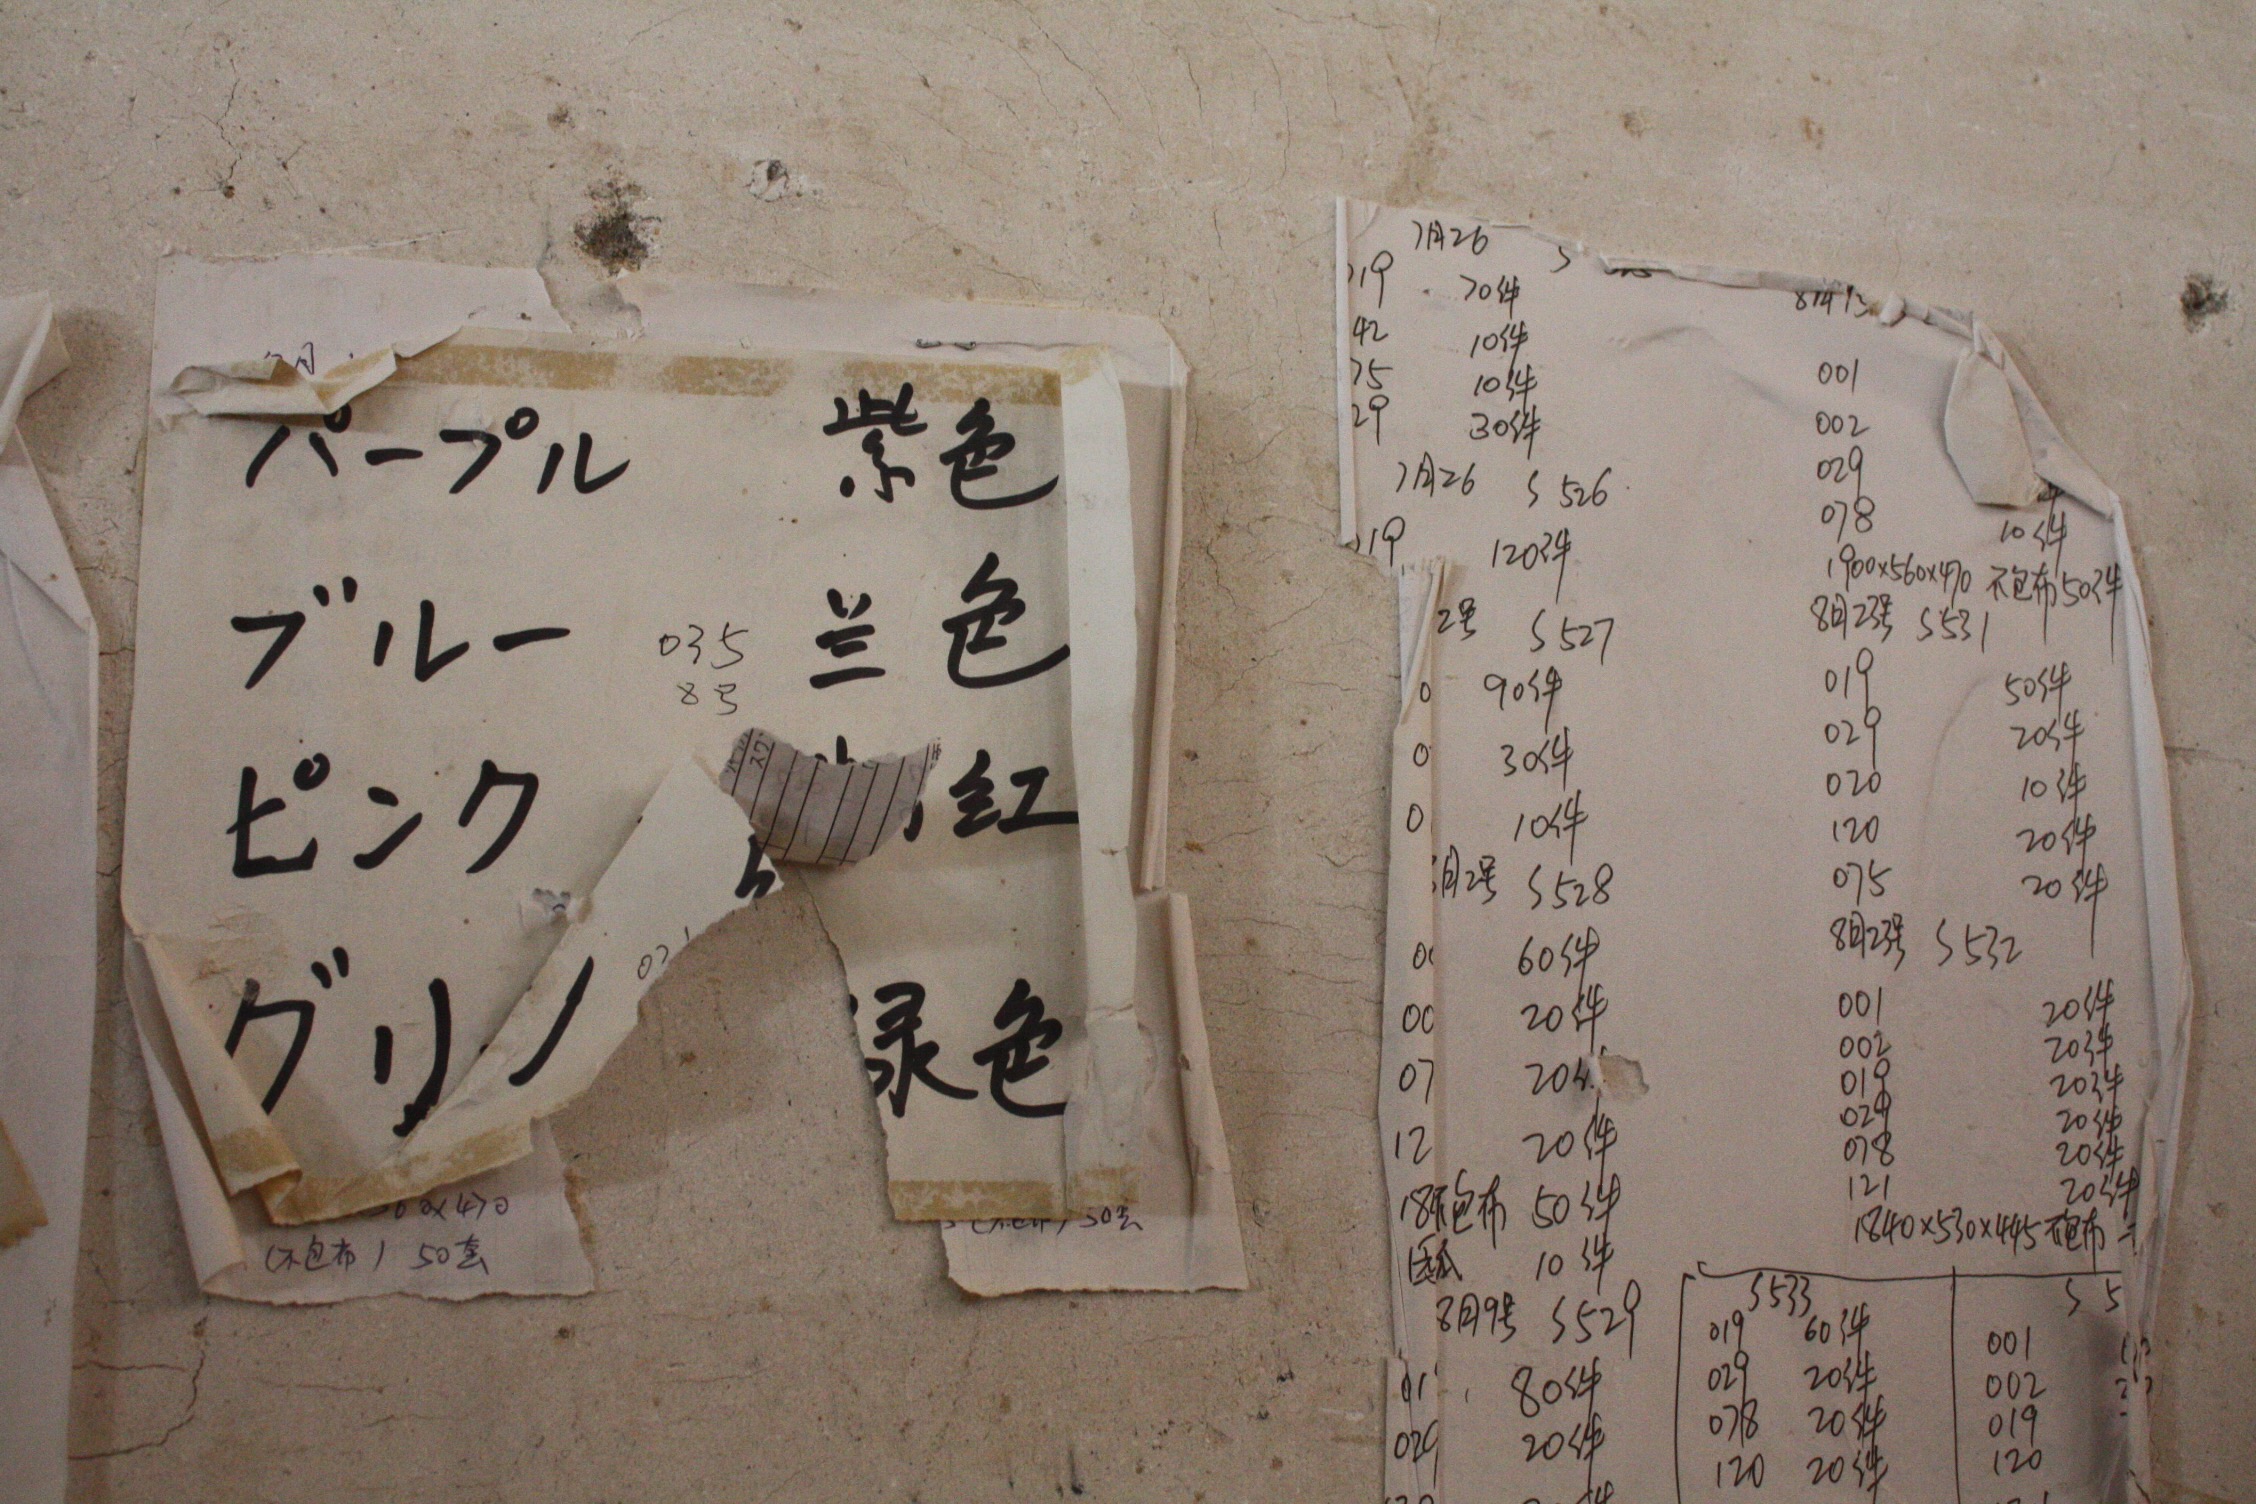 パープル 紫色
ブルー 035 兰色
8号
ピンク 红
グリ 绿色
(不包布) 50套
7月26
70件
42 10件
75 10件
29 30件
7月26 S 526
120件
2号 S 527
90件
30件
10件
月2号 S 528
60件
20件
07 20
12 20件
不包布 50件
10件
8月9号 S 529
80件
20件
001
002
029
078 10件
1900×560×470 不包布 50件
8月23号 S 531
019 50件
029 20件
020 10件
120 20件
075 20件
8月23号 S 532
001 20件
002 20件
019 20件
029 20件
078 20件
121 20件
1840×530×445 不包布
S 533
019 60件
029 20件
078 20件
120 20件
S 5
001
002
019
120